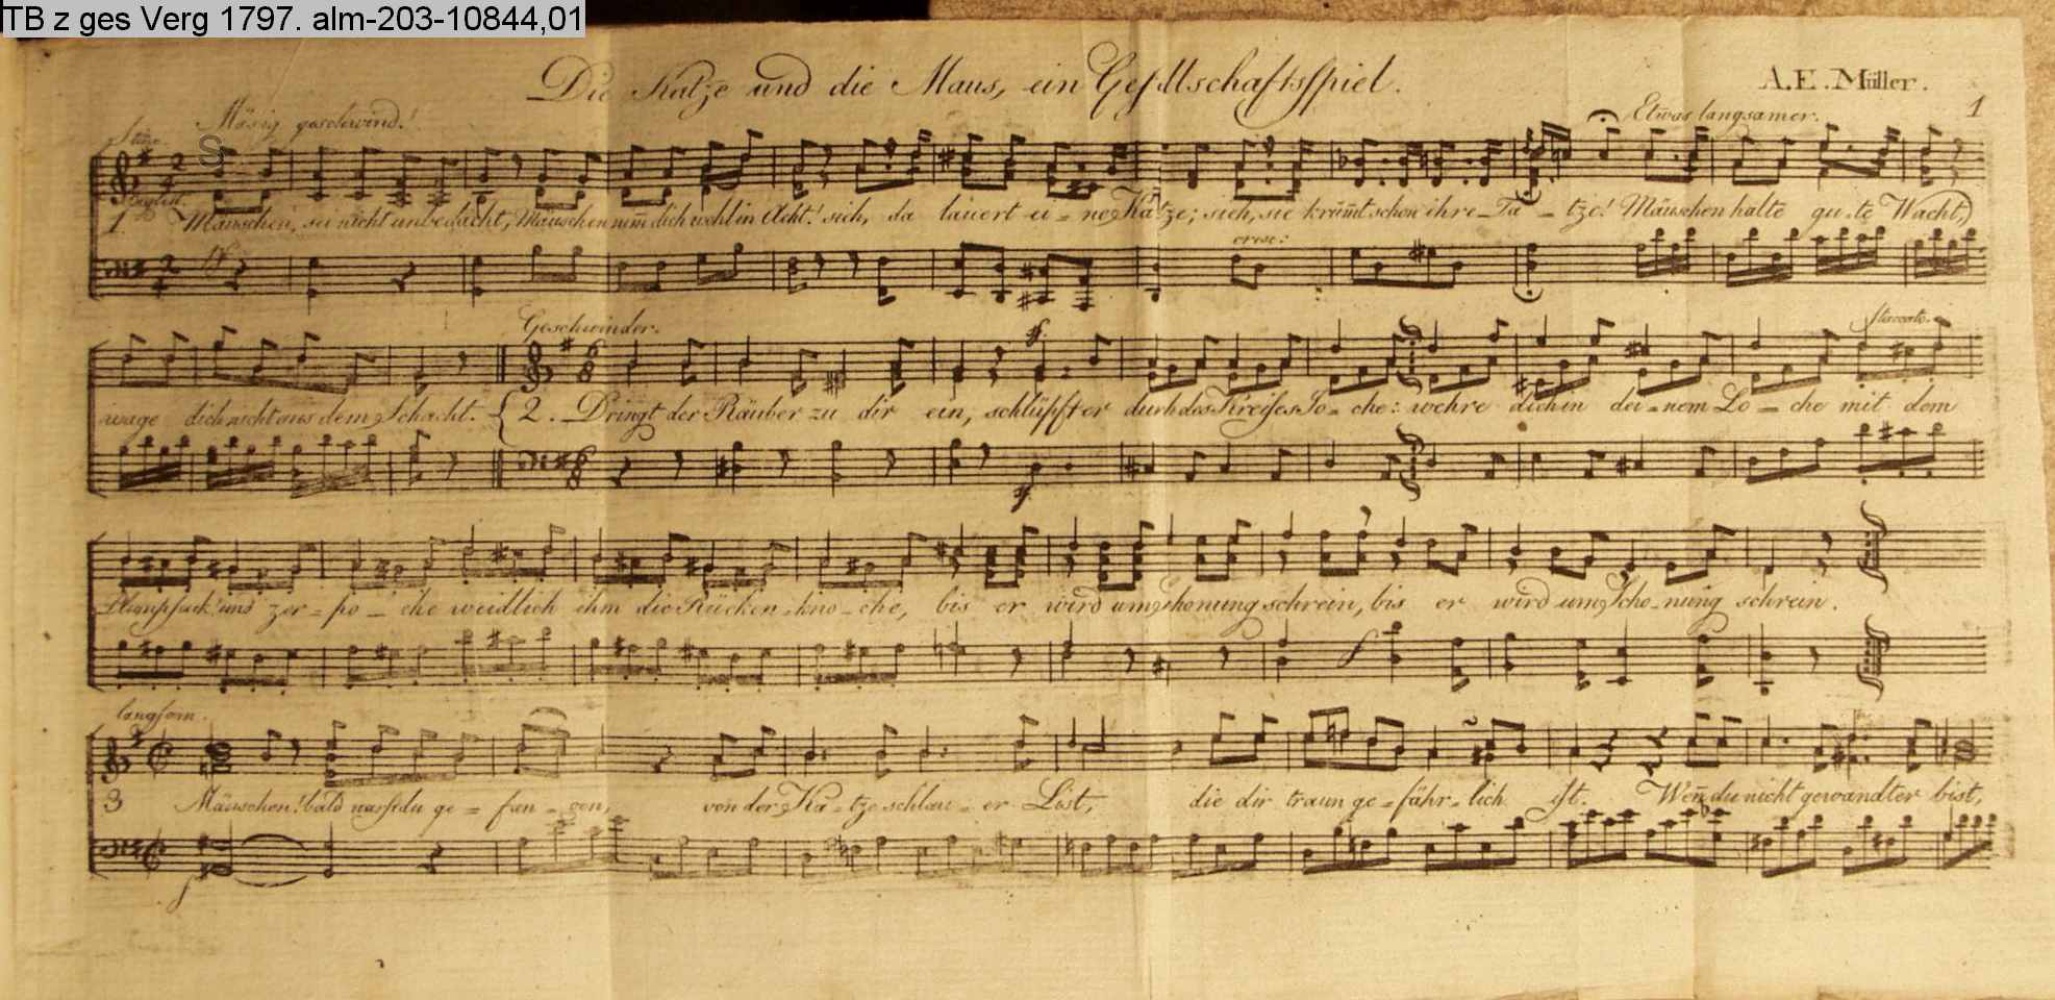 TB z ges Verg 1797. alm-203-10844,01
Die Katze und die Maus, ein Gesellschaftsspiel.
A. E. Müller.
1
Mäsig geschwind.
Etwas langsamer.
1 Mäuschen, sei nicht unbedacht, Mäuschen nim̄ dich wohl in Acht! sieh, da lauert ei-ne Katze; sieh, sie krüm̄t schon ihre Ta-tze! Mäuschen halte gu-te Wacht,
cresc:
Geschwinder.
Staccato.
wage dich nicht aus dem Schacht. 2. Dringt der Räuber zu dir ein, schlüpft er durch des Kreises Lo-che: wehre dich in dei-nem Lo-che mit dem
Plumpsack! und zer-po-che weidlich ihm die Rücken-kno-che, bis er wird um Schonung schrein, bis er wird um Scho-nung schrein.
langsam.
3 Mäuschen! bald warst du ge-fan-gen, von der Ka-tze schlau-er List, die dir traun ge-fähr-lich ist. Wen̄ du nicht gewandter bist,